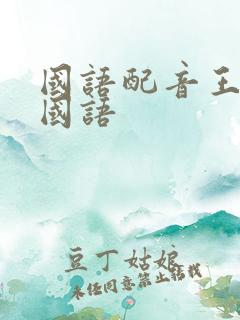 國語配音王
國語
豆丁姑娘
未经同意禁止转载